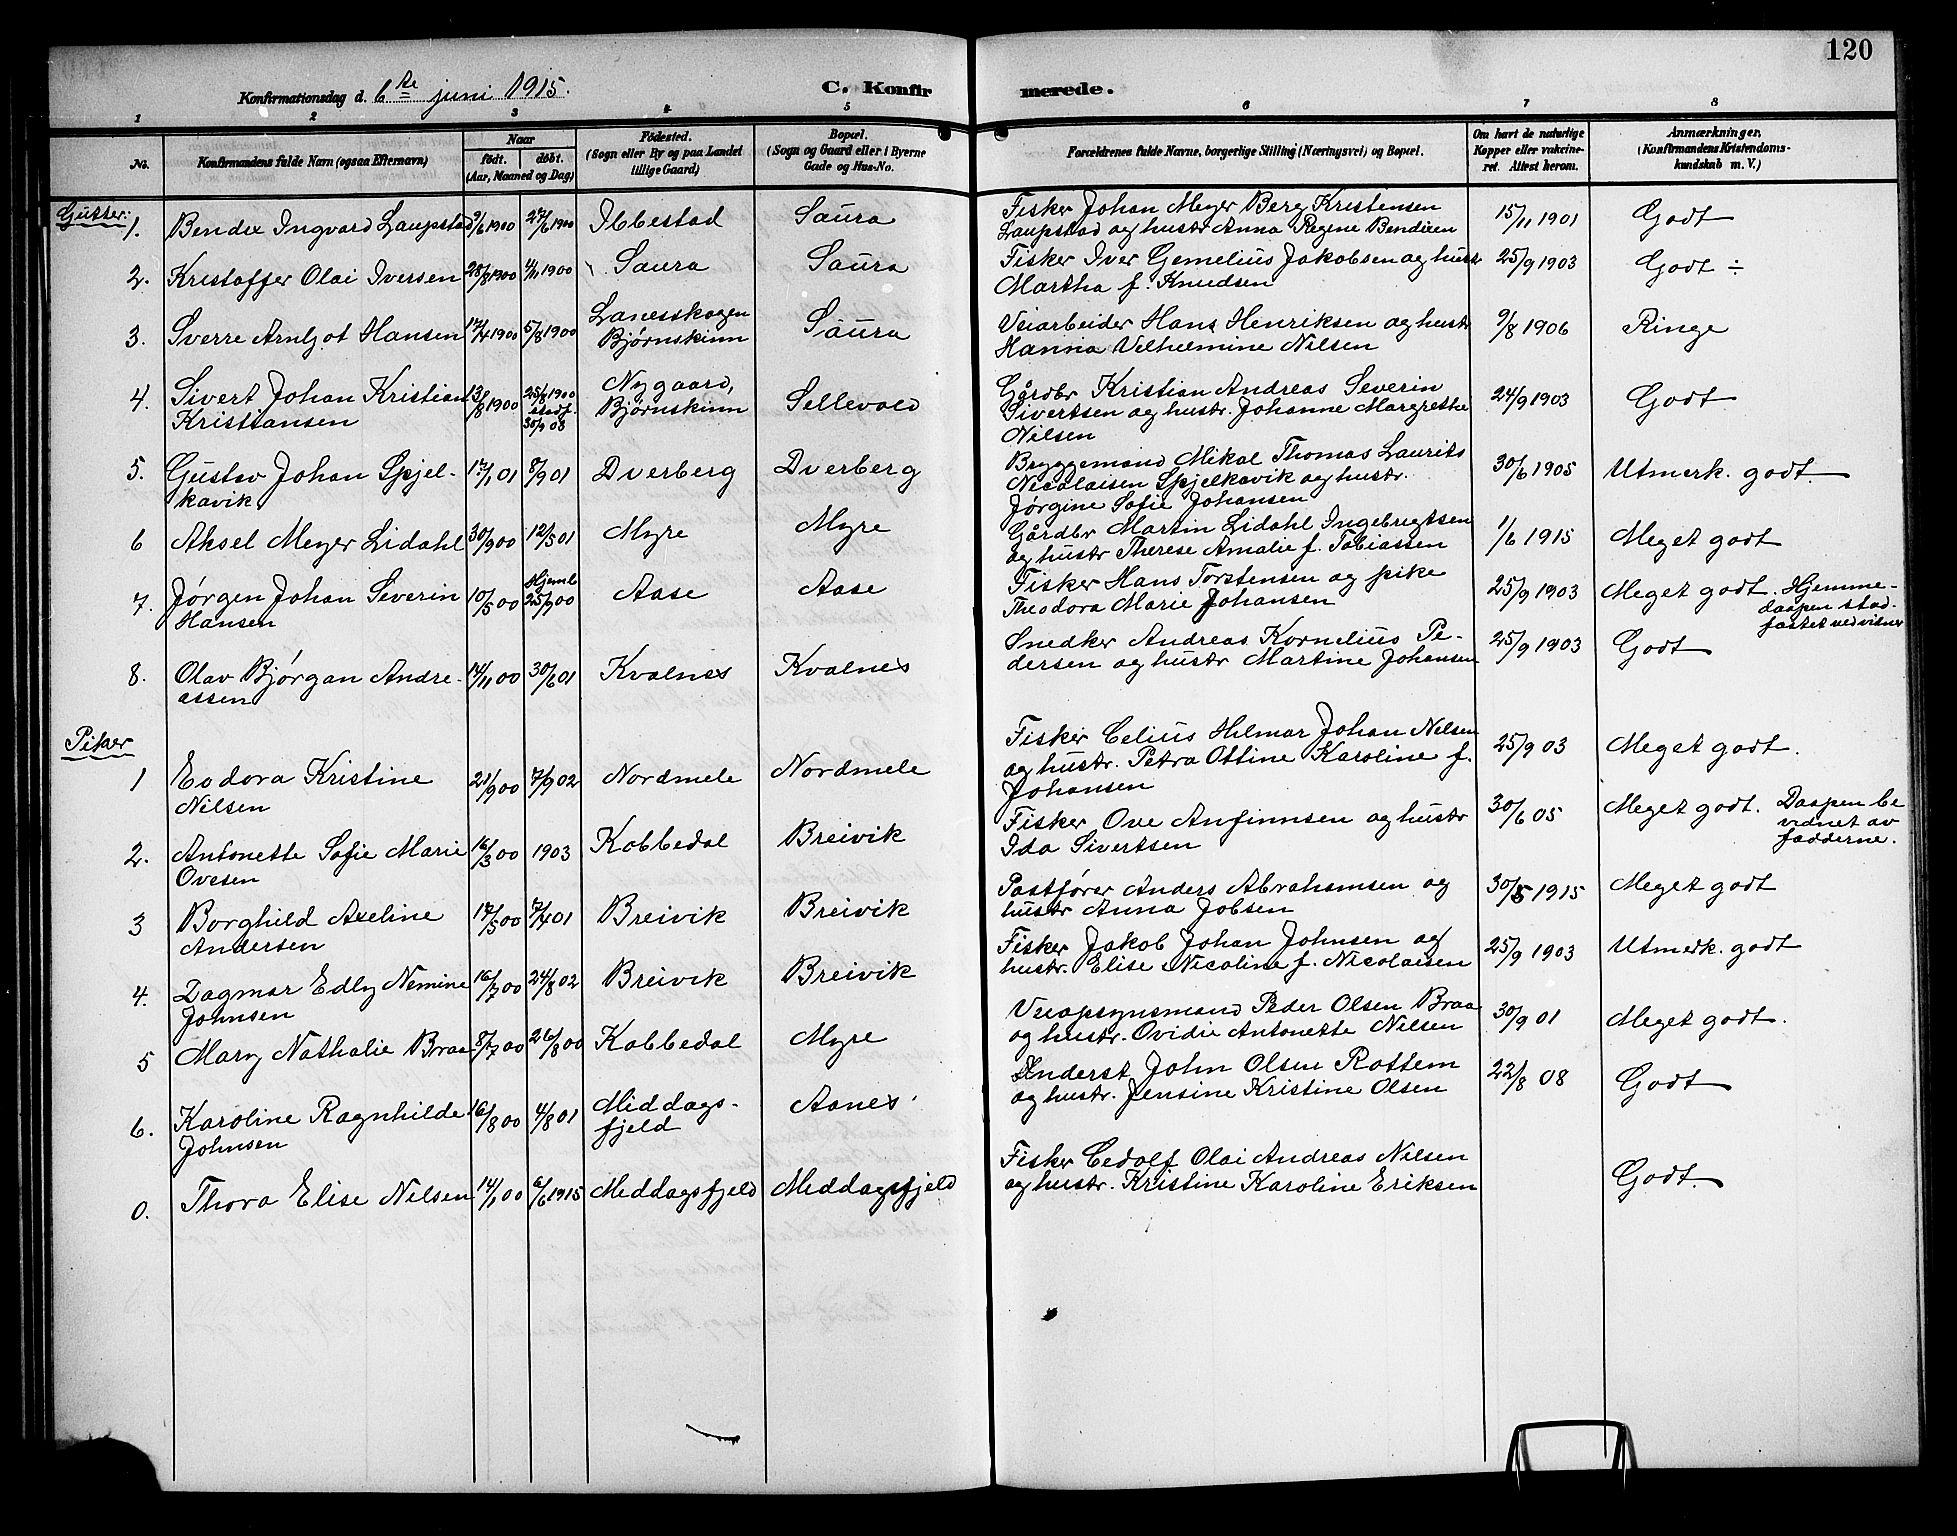 120
Konfirmationsdag d. 6te juni 1915.
C. Konfirmerede.
1 2 3 4 5 6 7 8
No.
Konfirmandens fulde Navn (ogsaa Efternavn)
Naar
født. døbt.
(Aar, Maaned og Dag)
Fødested.
(Sogn eller By og paa Landet
tillige Gaard)
Bopæl.
(Sogn og Gaard eller i Byerne
Gade og Hus-No.
Forældrenes fulde Navne, borgerlige Stilling (Næringsvei) og Bopæl.
Om havt de naturlige
Kopper eller vakcine-
ret. Attest herom.
Anmærkninger.
(Konfirmandens Kristendoms-
kundskab m. V.)
Gutter:
1. Bendix Ingvard Laupstad 9/6 1900 27/6 1900 Ibbestad Saura
Fisker Johan Meyer Berg Kristensen
Laupstad og hustr Anna Regine Bendixen
15/11 1901 Godt
2. Kristoffer Olai Iversen 28/8 1900 4/11 1900 Saura Saura
Fisker Iver Gemelius Jakobsen og hustr
Martha f. Knudsen
25/9 1903 Godt ÷
3. Sverre Arnljot Hansen 17/4 1900 5/8 1900
Lanesskogen
Bjørnskinn
Saura
Veiarbeider Hans Henriksen og hustr
Hanna Vilhelmine Nilsen
9/8 1906 Ringe
4. Sivert Johan Kristian
Kristiansen
13/8 1900
25/8 1900
stadf.
30/9 08
Nygaard,
Bjørnskinn
Sellevold
Gårdbr Kristian Andreas Severin
Sivertsen og hustr. Johanne Margrethe
Nilsen
24/9 1903 Godt
5. Gustav Johan Spjel-
kavik
17/1 01 8/9 01 Dverberg Dverberg
Bryggemand Mikal Thomas Laurits
Nicolaisen Spjelkavik og hustr.
Jørgine Sofie Johansen
30/6 1905 Utmerk. godt.
6 Aksel Meyer Lidahl 30/9 00 12/5 01 Myre Myre
Gårdbr Martin Lidahl Ingebrigtsen
og hustr Therese Amalie f. Tobiassen
1/6 1915 Meget godt
7. Jørgen Johan Severin
Hansen
10/5 00
Hjemb
25/9 00
Aase Aase
Fisker Hans Torstensen og pike
Theodora Marie Johansen
25/9 1903 Meget godt. Hjemme-
daapen stad-
fæstet ved vidner
8. Olav Bjørgan Andre-
assen
14/11 00 30/6 01 Kvalnes Kvalnes
Snedker Andreas Kornelius Pe-
dersen og hustr Martine Johansen
25/9 1903 Godt
Piker
1 Eodora Kristine
Nilsen
21/9 00 7/9 02 Nordmele Nordmele
Fisker Celius Hilmar Johan Nilsen
og hustr. Petra Ottine Karoline f.
Johansen
25/9 03 Meget godt.
2. Antonette Sofie Marie
Ovesen
16/3 00 1903 Kobbedal Breivik
Fisker Ove Anfinnsen og hustr
Ida Sivertsen
30/6 05 Meget godt. Daapen be
vidnet av
fadderne.
3 Borghild Axeline
Andersen
17/5 00 7/4 01 Breivik Breivik
Postfører Anders Abrahamsen og
hustr Anna Jobsen
30/5 1915 Meget godt
4. Dagmar Edly Nemine
Johnsen
16/7 00 24/8 02 Breivik Breivik
Fisker Jakob Johan Johnsen og
hustr. Elise Nicoline f. Nicolaisen
25/9 1903 Utmerk. godt
5 Mary Nathalie Braa 8/7 00 26/8 00 Kobbedal Myre
Veiopsynsmand Peder Olsen Braa
og hustr. Ovidie Antonette Nilsen
30/9 01 Meget godt.
6. Karoline Ragnhilde
Johnsen
16/8 00 4/8 01
Middags-
fjeld
Aanes
Inderst John Olsen Rottem
og hustr. Jensine Kristine Olsen
22/8 08 Godt
0. Thora Elise Nilsen 14/1 00 6/6 1915 Middagsfjeld Middagsfjeld
Fisker Cedolf Olai Andreas Nilsen
og hustr. Kristine Karoline Eriksen
Godt.